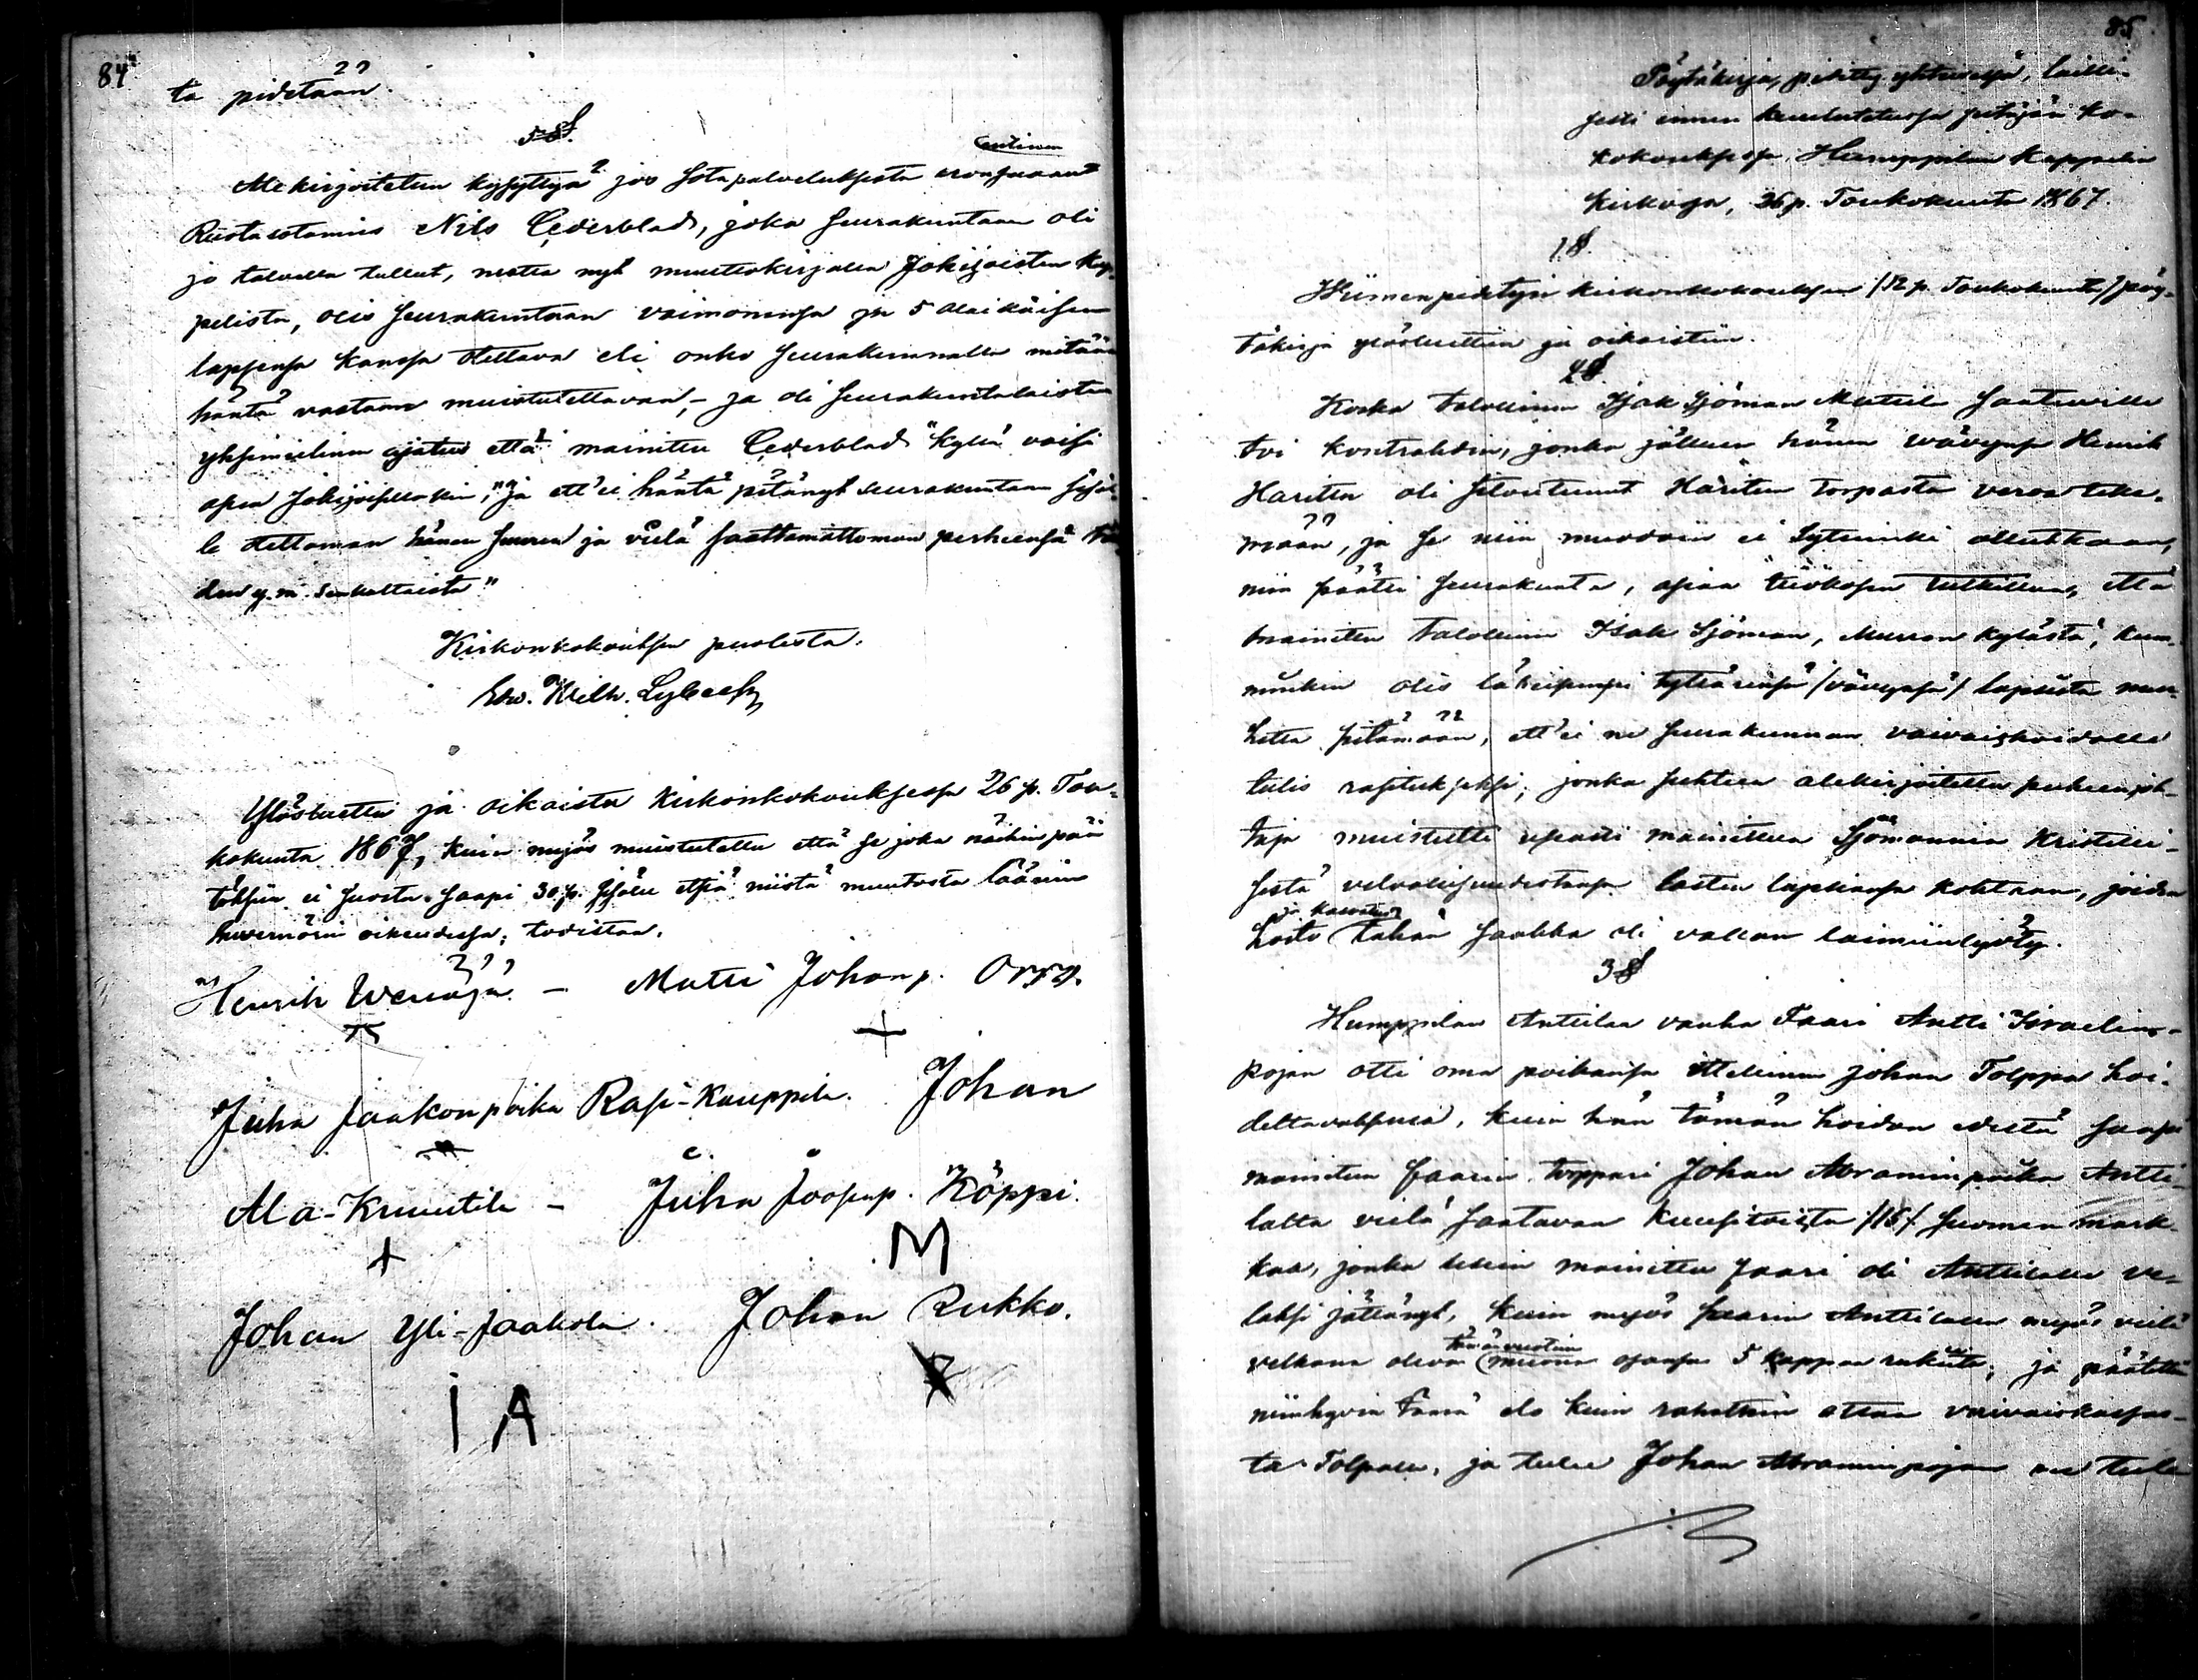 84
ta pidetään.
5 §.
Alekirjoitetun kysyttyä jos sotapalveluksesta eronsaanut entinen
Ruotusotamies Nils Cederblad, joka seurakuntaan oli
jo talvella tullut, mutta nyt muuttokirjalla Jokioisten Kap-
pelista, olis seurakuntaan vaimonensa ja 5 alaikäisen
lapsensa kanssa otettava eli onko seurakunnalla mitään
häntä vastaan muistutettavaa, – ja oli seurakuntalaisten
yksimielinen ajatus että mainittu Cederblad "kyllä voisi
asua Jokioisissakin," ja ett'ei häntä pitänyt seurakuntaan sisäl-
le otettaman hänen suuren ja vielä saattamattoman perheensä
den y.m. senkaltaista"
Kirkonkokouksen puolesta.
Edv. Wilh. Lybeck
Ylösluettu ja oikaistu Kirkonkokouksessa 26 p. Tou-
kokuuta 1867, kuin myös muistutettu että se joka näihin pää-
töksiin ei suostu saapi 30 p. sisällä etsiä niistä muutosta läänin
kuvernörin oikeudessa; todistaa.
Henrik Weriäjä – Matti Johanp. Orpo.
Juha Jaakonpoika Rasi-Kauppila. Johan
Ala-Kruutila – Juha Joosepp. Köppi.
M
Johan Yli-Jaakola. Johan Rukko.
I A
85
Pöytäkirja, pidetty yhteisessä, lailli-
sesti ennen kuulutetussa pitäjän ko-
kouksessa Humppilan Kappelin
Kirkossa, 26 p. Toukokuuta 1867.
1 §.
Viimen pidetyn kirkonkokouksen /12 p. Toukokuuta/ pöy-
täkirja ylösluettiin ja oikaistiin.
2 §.
Koska talollinen Isak Sjöman Mattila saatuville
toi kontrahdin, jonka jälkeen hänen vävynsä Henrik
Haritun oli sitoutunut Häritun torpasta veroa teke-
mään, ja se niin muodoin ei Sytinki ollutkaan,
niin päätti seurakunta, asian tutkittua, että
mainittu talollinen Isak Sjöman, Murron kylästä, kum-
minkin olis läheisempi tyttärensä /vävynsä/ lapsista mur-
hetta pitämään, ett'ei ne seurakunnan vaivaishoidolle
tulis rasitukseksi, jonka suhteen alekirjoitettu puheenjoh-
taja muistutti mainittua Sjömannia Kristilli-
sestä velvollisuudestansa lasten lapsiansa kohtaan, joiden
hoito ja kasvatus tähän saakka oli vallan laiminlyöty.
3 §
Humppilan Anttilan vanha Faari Antti Israelin-
pojan otti oma poikansa itsellinen Johan Tolppa hoi-
dettavaksensa, kuin hän tämän hoidon edestä saapi
mainitun faarin torppari Johan Abraminpoika Antti-
lalta vielä saatavan kuusitoista /16/ Suomen mark-
kaa, jonka mainittu faari oli Anttilalle ve-
laksi jättänyt, kuin myös faarin Anttilassa myös vielä
velkana oleva tämänvuotinen muona osansa 5 kappaa rukiita, ja päätettiin
niinhyvin tämä elo kuin rahatkin ottaa vaivaiskassas-
ta Tolpalle, ja tulee Johan Abraminpojan